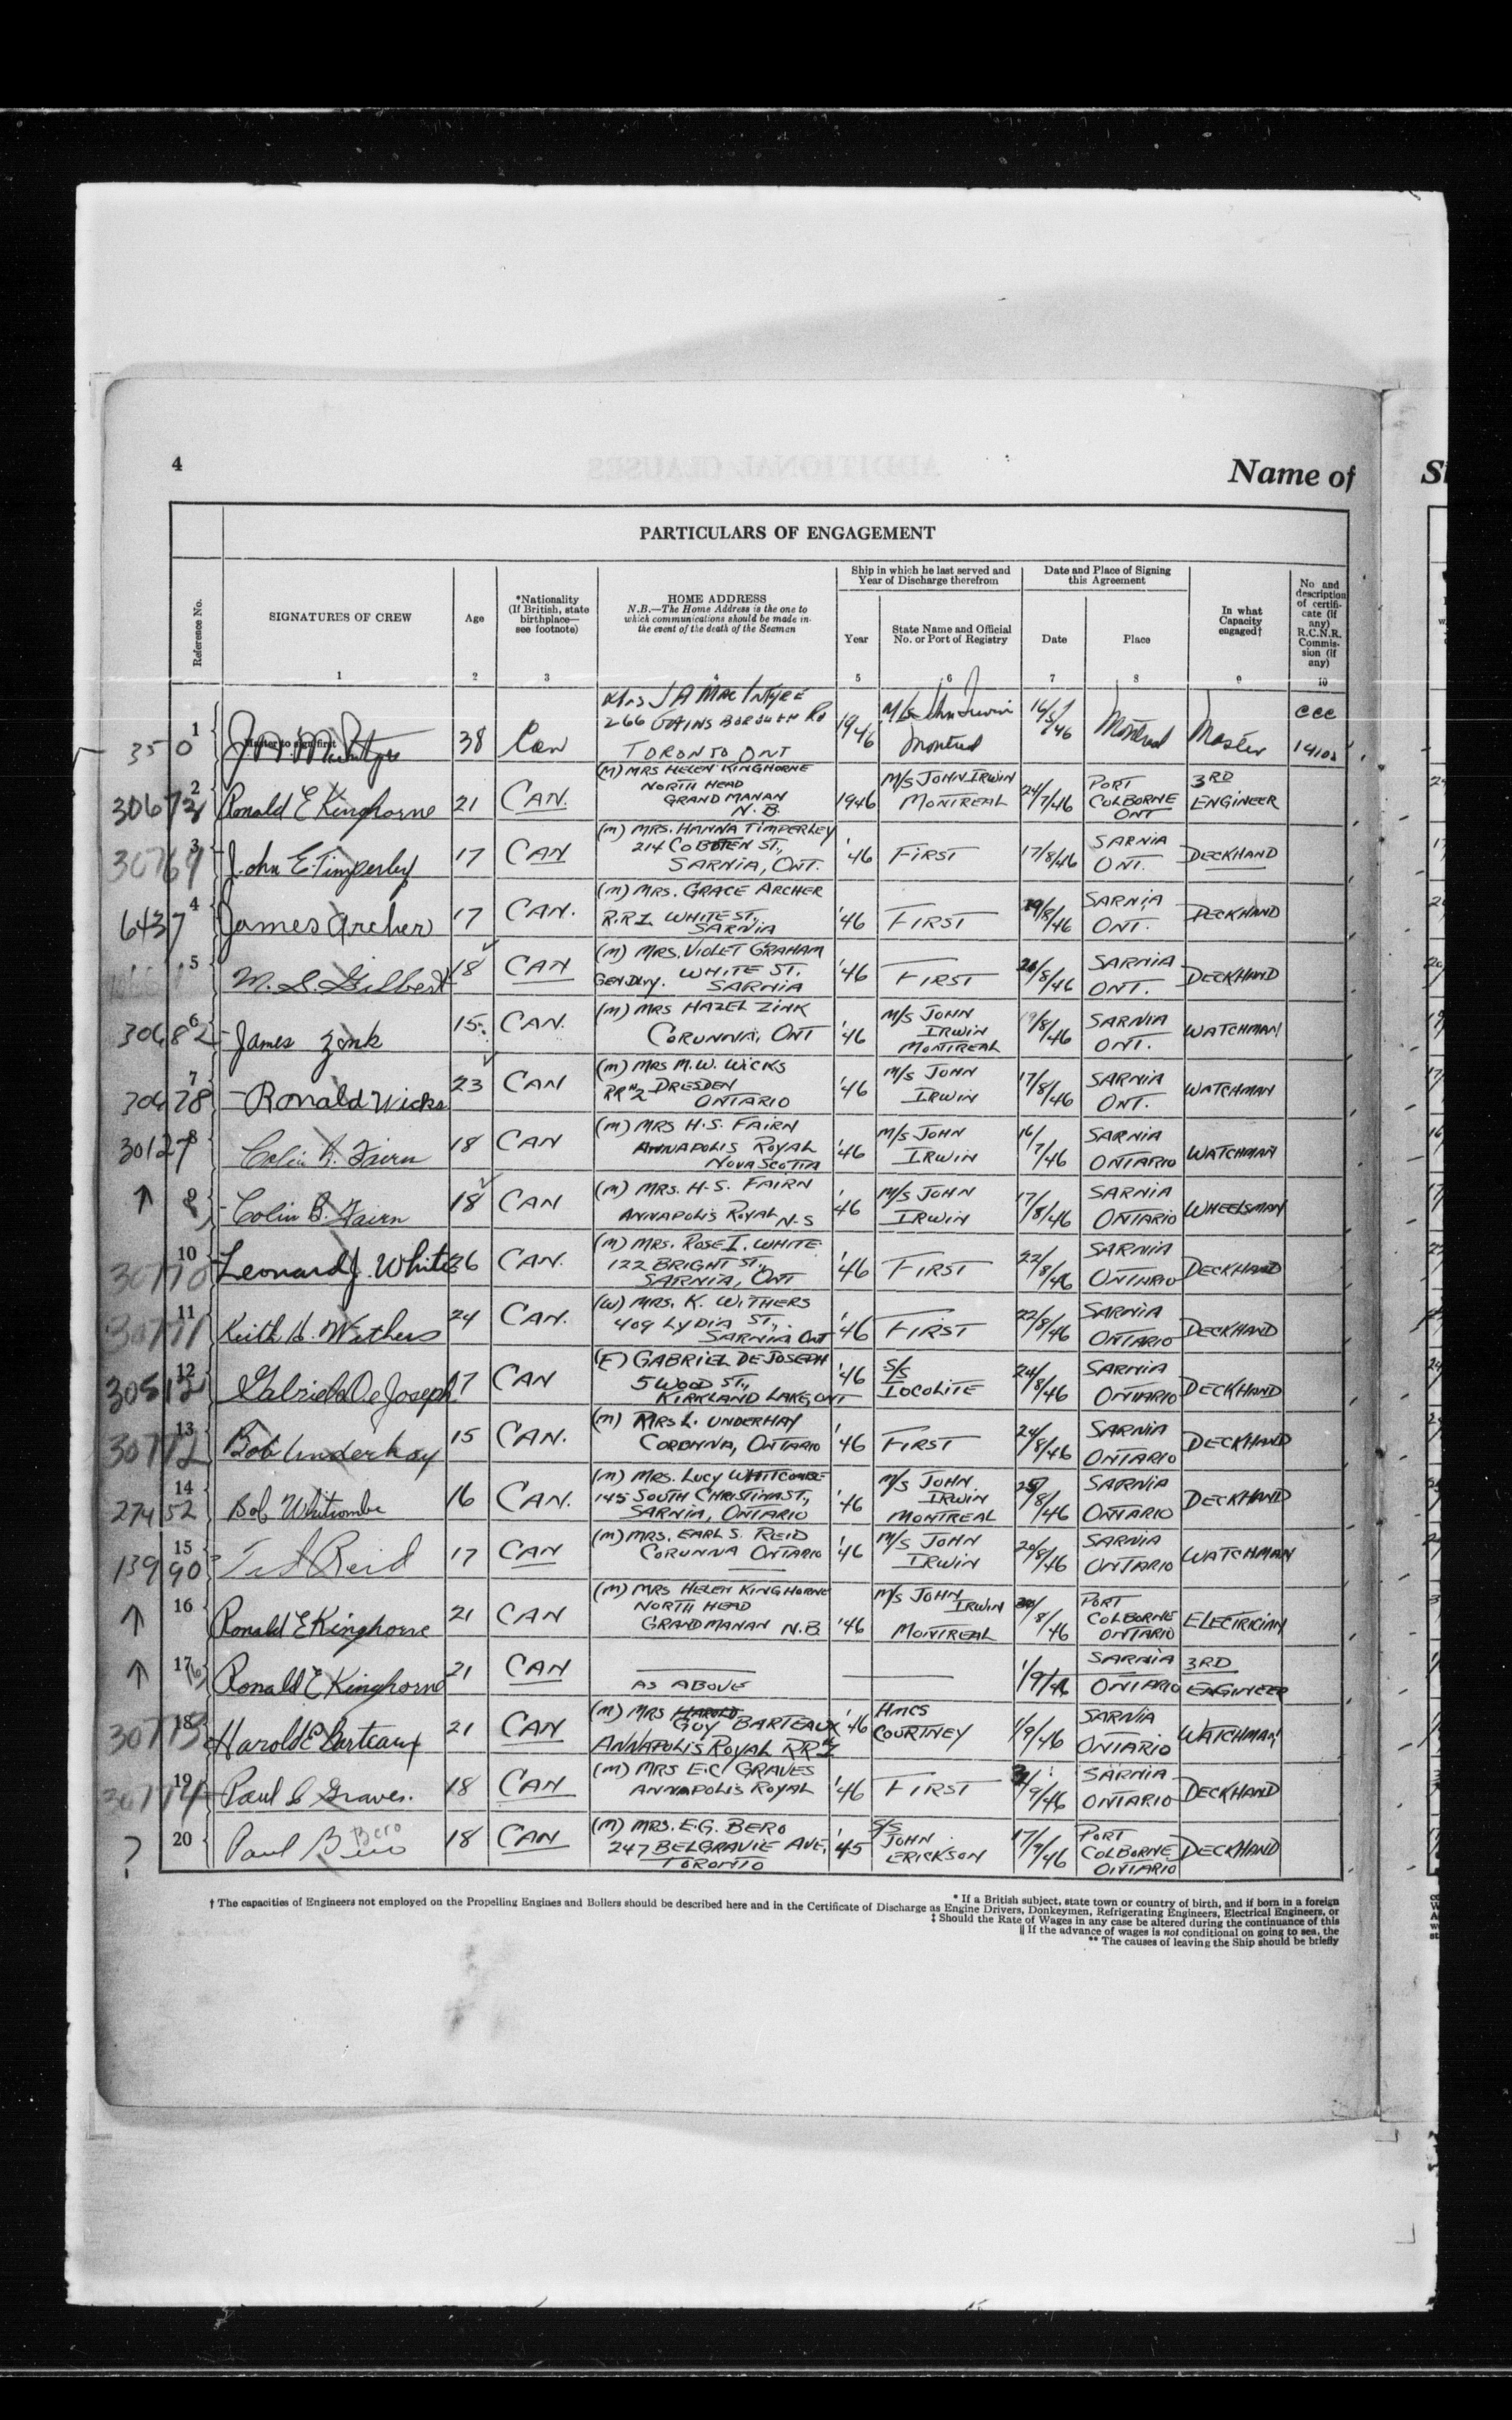 4
Name of
PARTICULARS OF ENGAGEMENT
Reference No.
SIGNATURES OF CREW
1
Age
2
*Nationality
(If British, state
birthplace—
see footnote)
3
HOME ADDRESS
N.B.—The Home Address is the one to
which communications should be made in
the event of the death of the Seaman
4
Ship in which he last served and
Year of Discharge therefrom
Year
5
State Name and Official
No. or Port of Registry
6
Date and Place of Signing
this Agreement
Date
7
Place
8
In what
Capacity
engaged†
9
No and
description
of certifi-
cate (if
any)
R.C.N.R.
Commis-
sion (if
any)
10
35 0 1 Master to sign first 38 Can
Mrs J A MacIntyre
266 GAINSBOROUGH Rd
TORONTO ONT
1946 M/S John Irwin
Montreal
Montreal Master
CCC
306 73 2 Ronald E Kinghorne 21 CAN.
(M) MRS HELEN KINGHORNE
NORTH HEAD
GRAND MANAN
N.B.
1946 M/S JOHN IRWIN
MONTREAL
24/7/46 PORT
COLBORNE
ONT
3RD
ENGINEER
30769 3 John E Timperley 17 CAN
(M) MRS. HANNA TIMPERLEY
214 COBDEN ST.,
SARNIA, ONT.
'46 FIRST 17/8/46 SARNIA
ONT. DECKHAND
6437 4 James Archer 17 CAN.
(M) MRS. GRACE ARCHER
R.R.1 WHITE ST.,
SARNIA
'46 FIRST 19/8/46 SARNIA
ONT. DECKHAND
5 M. S. Gilbert 18 CAN
(M) MRS. VIOLET GRAHAM
GEN DLVY. WHITE ST.
SARNIA
'46 FIRST 20/8/46 SARNIA
ONT. DECKHAND
30682 6 James Zink 15 CAN.
(M) MRS HAZEL ZINK
CORUNNA, ONT
'46 M/S JOHN
IRWIN
MONTREAL
19/8/46 SARNIA
ONT. WATCHMAN
306 78 7 Ronald Wicks 23 CAN
(M) MRS M.W. WICKS
RR#2 DRESDEN
ONTARIO
'46 M/S JOHN
IRWIN
17/8/46 SARNIA
ONT. WATCHMAN
30127 8 Colin B. Fairn 18 CAN
(M) MRS H.S. FAIRN
ANNAPOLIS ROYAL
NOVA SCOTIA
'46 M/S JOHN
IRWIN
16/7/46 SARNIA
ONTARIO WATCHMAN
↑ Colin B. Fairn 18 CAN
(M) MRS. H.S. FAIRN
ANNAPOLIS ROYAL N.S
'46 M/S JOHN
IRWIN
17/8/46 SARNIA
ONTARIO WHEELSMAN
30770 10 Leonard J. White 36 CAN.
(M) MRS. ROSE I. WHITE
122 BRIGHT ST.,
SARNIA, ONT
'46 FIRST 22/8/46 SARNIA
ONTARIO DECKHAND
30771 11 Keith H. Withers 24 CAN.
(W) MRS. K. WITHERS
409 LYDIA ST.,
SARNIA ONT
'46 FIRST 22/8/46 SARNIA
ONTARIO DECKHAND
30512 12 Gabriel DeJoseph 17 CAN
(F) GABRIEL DE JOSEPH
5 WOOD ST.,
KIRKLAND LAKE, ONT
'46 S/S
IOCOLITE
24/8/46 SARNIA
ONTARIO DECKHAND
30772 13 Bob Underhay 15 CAN.
(M) MRS L. UNDERHAY
CORUNNA, ONTARIO
'46 FIRST 24/8/46 SARNIA
ONTARIO DECKHAND
27452 14 Bob Whitcombe 16 CAN.
(M) MRS. LUCY WHITCOMBE
145 SOUTH CHRISTINA ST.,
SARNIA, ONTARIO
'46 M/S JOHN
IRWIN
MONTREAL
25/8/46 SARNIA
ONTARIO DECKHAND
13990 15 Ted Reid 17 CAN
(M) MRS. EARL S. REID
CORUNNA ONTARIO
'46 M/S JOHN
IRWIN
20/8/46 SARNIA
ONTARIO WATCHMAN
↑ 16 Ronald E Kinghorne 21 CAN
(M) MRS HELEN KINGHORNE
NORTH HEAD
GRAND MANAN N.B
'46 M/S JOHN
IRWIN
MONTREAL
PORT
COLBORNE
ONTARIO ELECTRICIAN
↑ 17 Ronald E Kinghorne 21 CAN
AS ABOVE
1/9/46 SARNIA
ONTARIO
3RD
ENGINEER
30773 18 Harold E Barteaux 21 CAN
(M) MRS HAROLD
GUY BARTEAUX
ANNAPOLIS ROYAL RR#1
'46 HMCS
COURTNEY
1/9/46 SARNIA
ONTARIO WATCHMAN
30774 19 Paul C Graves. 18 CAN
(M) MRS E.C. GRAVES
ANNAPOLIS ROYAL
'46 FIRST SARNIA
ONTARIO DECKHAND
? 20 Paul Bero Bero 18 CAN
(M) MRS. E.G. BERO
247 BELGRAVIE AVE,
TORONTO
'45 S/S
JOHN
ERICKSON
17/9/46 PORT
COLBORNE
ONTARIO DECKHAND
* If a British subject, state town or country of birth, and if born in a foreign
† The capacities of Engineers not employed on the Propelling Engines and Boilers should be described here and in the Certificate of Discharge as Engine Drivers, Donkeymen, Refrigerating Engineers, Electrical Engineers, or
‡ Should the Rate of Wages in any case be altered during the continuance of this
|| If the advance of wages is not conditional on going to sea, the
** The causes of leaving the Ship should be briefly